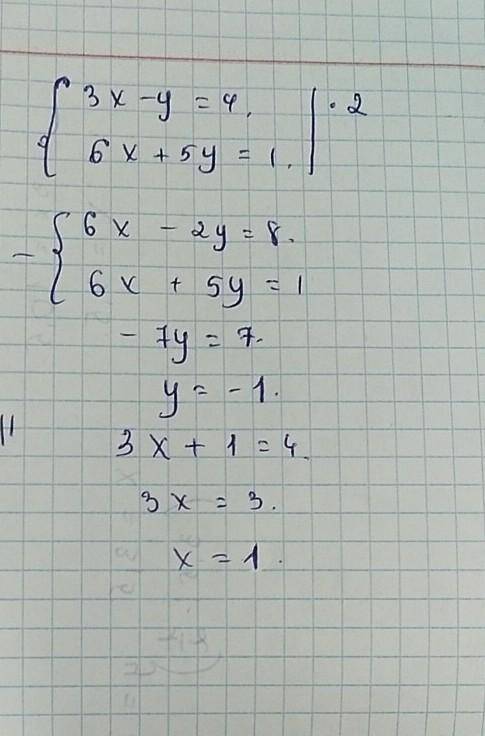 3x - y = 4, | · 2
6x + 5y = 1.
- 6x - 2y = 8.
6x + 5y = 1
- 7y = 7.
y = - 1.
3x + 1 = 4.
3x = 3.
x = 1.